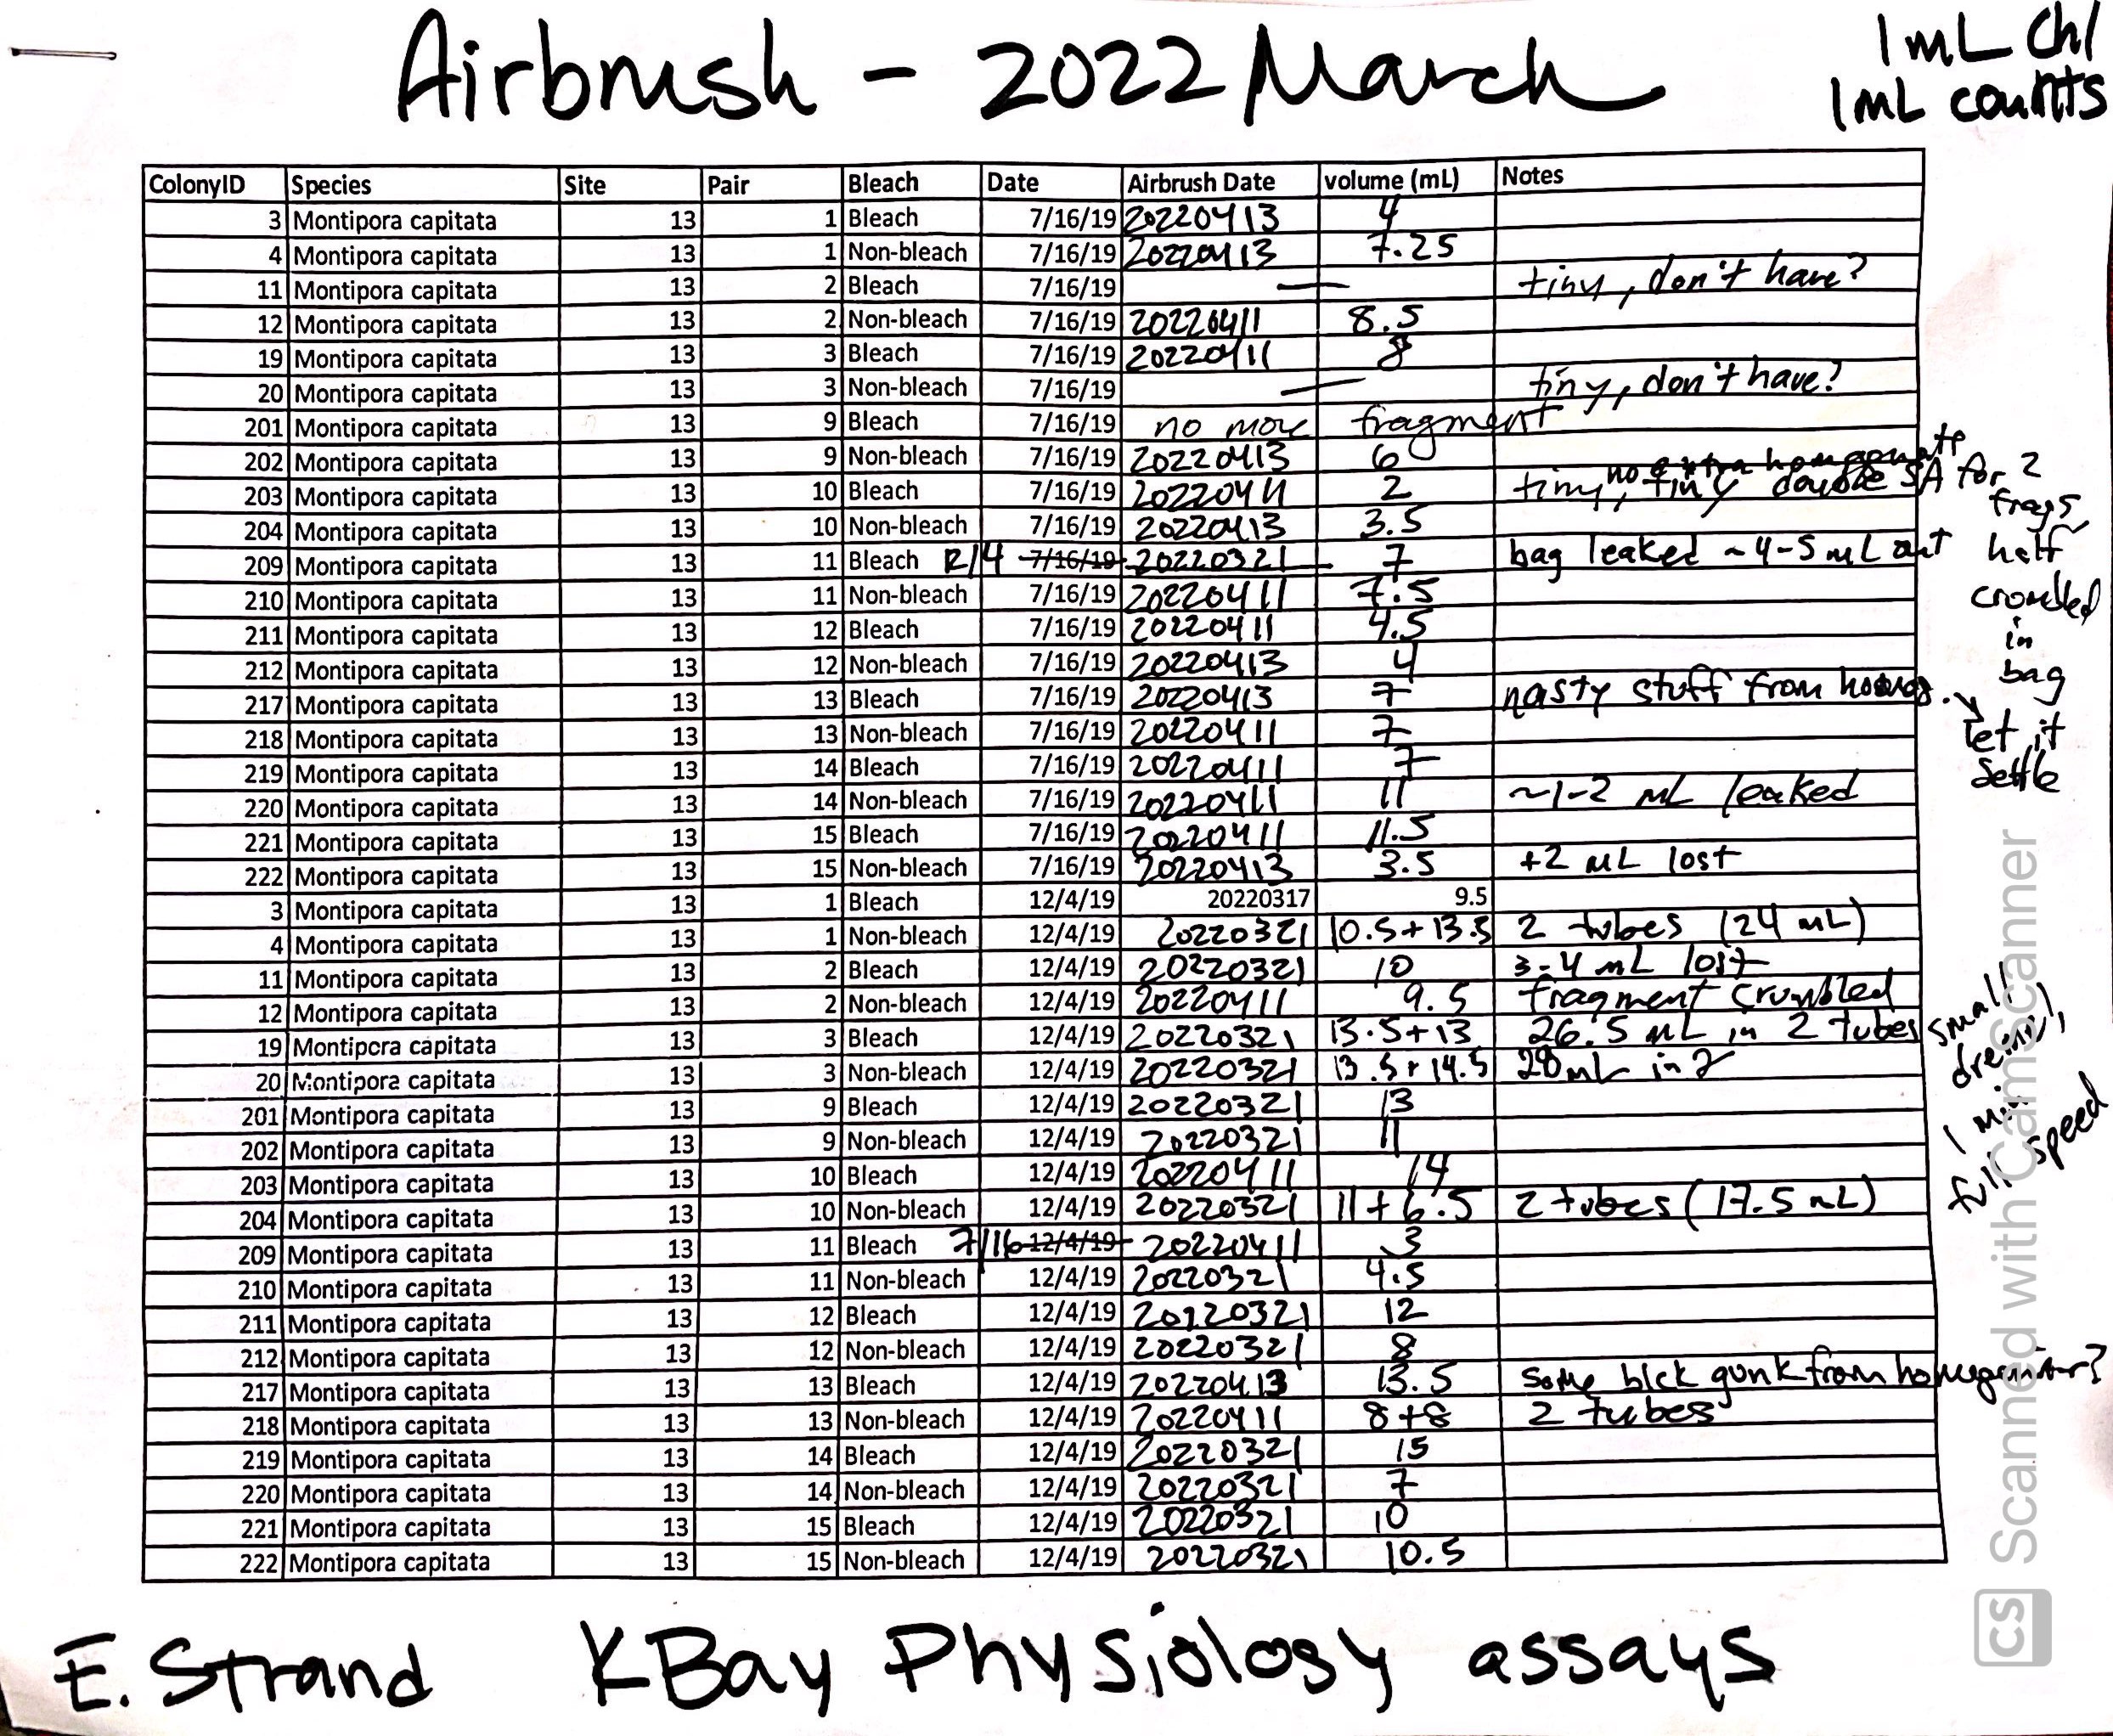 Airbrush - 2022 March
1 mL Chl
1 mL counts
ColonyID Species Site Pair Bleach Date Airbrush Date volume (mL) Notes
3 Montipora capitata 13 1 Bleach 7/16/19 20220413 4
4 Montipora capitata 13 1 Non-bleach 7/16/19 20220413 7.25
11 Montipora capitata 13 2 Bleach 7/16/19 — tiny, don't have?
12 Montipora capitata 13 2 Non-bleach 7/16/19 20220411 8.5
19 Montipora capitata 13 3 Bleach 7/16/19 20220411 8
20 Montipora capitata 13 3 Non-bleach 7/16/19 — tiny, don't have?
201 Montipora capitata 13 9 Bleach 7/16/19 no more fragment
202 Montipora capitata 13 9 Non-bleach 7/16/19 20220413 6
no extra homogenate
203 Montipora capitata 13 10 Bleach 7/16/19 20220411 2 tiny, tiny double SA for 2 frags
204 Montipora capitata 13 10 Non-bleach 7/16/19 20220413 3.5
209 Montipora capitata 13 11 Bleach 12/4 7/16/19 20220321 7 bag leaked ~4-5 mL out
half
crombled
in
bag
210 Montipora capitata 13 11 Non-bleach 7/16/19 20220411 7.5
211 Montipora capitata 13 12 Bleach 7/16/19 20220411 4.5
212 Montipora capitata 13 12 Non-bleach 7/16/19 20220413 4
217 Montipora capitata 13 13 Bleach 7/16/19 20220413 7 nasty stuff from
let it
settle
218 Montipora capitata 13 13 Non-bleach 7/16/19 20220411 7
219 Montipora capitata 13 14 Bleach 7/16/19 20220411 7
220 Montipora capitata 13 14 Non-bleach 7/16/19 20220411 11 ~1-2 mL leaked
221 Montipora capitata 13 15 Bleach 7/16/19 20220411 11.5
222 Montipora capitata 13 15 Non-bleach 7/16/19 20220413 3.5 +2 mL lost
3 Montipora capitata 13 1 Bleach 12/4/19 20220317 9.5
4 Montipora capitata 13 1 Non-bleach 12/4/19 20220321 10.5+13.5 2 tubes (24 mL)
11 Montipora capitata 13 2 Bleach 12/4/19 20220321 10 3-4 mL lost
12 Montipora capitata 13 2 Non-bleach 12/4/19 20220411 9.5 fragment crumbled
19 Montipora capitata 13 3 Bleach 12/4/19 20220321 13.5+13 26.5 mL in 2 tubes
20 Montipora capitata 13 3 Non-bleach 12/4/19 20220321 13.5+14.5 28 mL in 2
small
dremel,
1 min
full speed
201 Montipora capitata 13 9 Bleach 12/4/19 20220321 13
202 Montipora capitata 13 9 Non-bleach 12/4/19 20220321 11
203 Montipora capitata 13 10 Bleach 12/4/19 20220411 14
204 Montipora capitata 13 10 Non-bleach 12/4/19 20220321 11+6.5 2 tubes (17.5 mL)
209 Montipora capitata 13 11 Bleach 7/16 12/4/19 20220411 3
210 Montipora capitata 13 11 Non-bleach 12/4/19 20220321 4.5
211 Montipora capitata 13 12 Bleach 12/4/19 20220321 12
212 Montipora capitata 13 12 Non-bleach 12/4/19 20220321 8
217 Montipora capitata 13 13 Bleach 12/4/19 20220413 13.5 some blck gunk from homogenizer?
218 Montipora capitata 13 13 Non-bleach 12/4/19 20220411 8+8 2 tubes
219 Montipora capitata 13 14 Bleach 12/4/19 20220321 15
220 Montipora capitata 13 14 Non-bleach 12/4/19 20220321 7
221 Montipora capitata 13 15 Bleach 12/4/19 20220321 10
222 Montipora capitata 13 15 Non-bleach 12/4/19 20220321 10.5
E. Strand KBay Physiology assays
CS Scanned with CamScanner